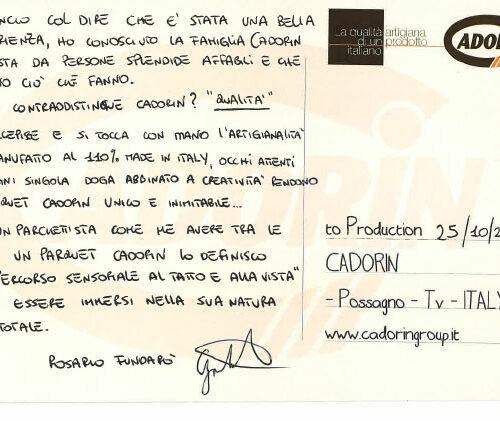 NCIO COL DIRE CHE E' STATA UNA BELLA
RIENZA, HO CONOSCIUTO LA FAMIGLIA CADORIN
STA DA PERSONE SPLENDIDE AFFABILI E CHE
TO CIO' CHE FANNO.
CONTRADDISTINGUE CADORIN? "QUALITA'"
CEPISCE E SI TOCCA CON MANO L'ARTIGIANALITA'
ANUFATTO AL 110% MADE IN ITALY, OCCHI ATTENTI
NI SINGOLA DOGA ABBINATO A CREATIVITA' RENDONO
QUET CADORIN UNICO E INIMITABILE...
UN PARCHETTISTA COME ME AVERE TRA LE
UN PARQUET CADORIN LO DEFINISCO
PERCORSO SENSORIALE AL TATTO E ALLA VISTA"
ESSERE IMMERSI NELLA SUA NATURA
TOTALE.
ROSARIO FUNDARO'
La qualità artigiana
di un prodotto
italiano.
ADOR
to Production 25/10/2
CADORIN
- Possagno - Tv - ITALY
www.cadoringroup.it